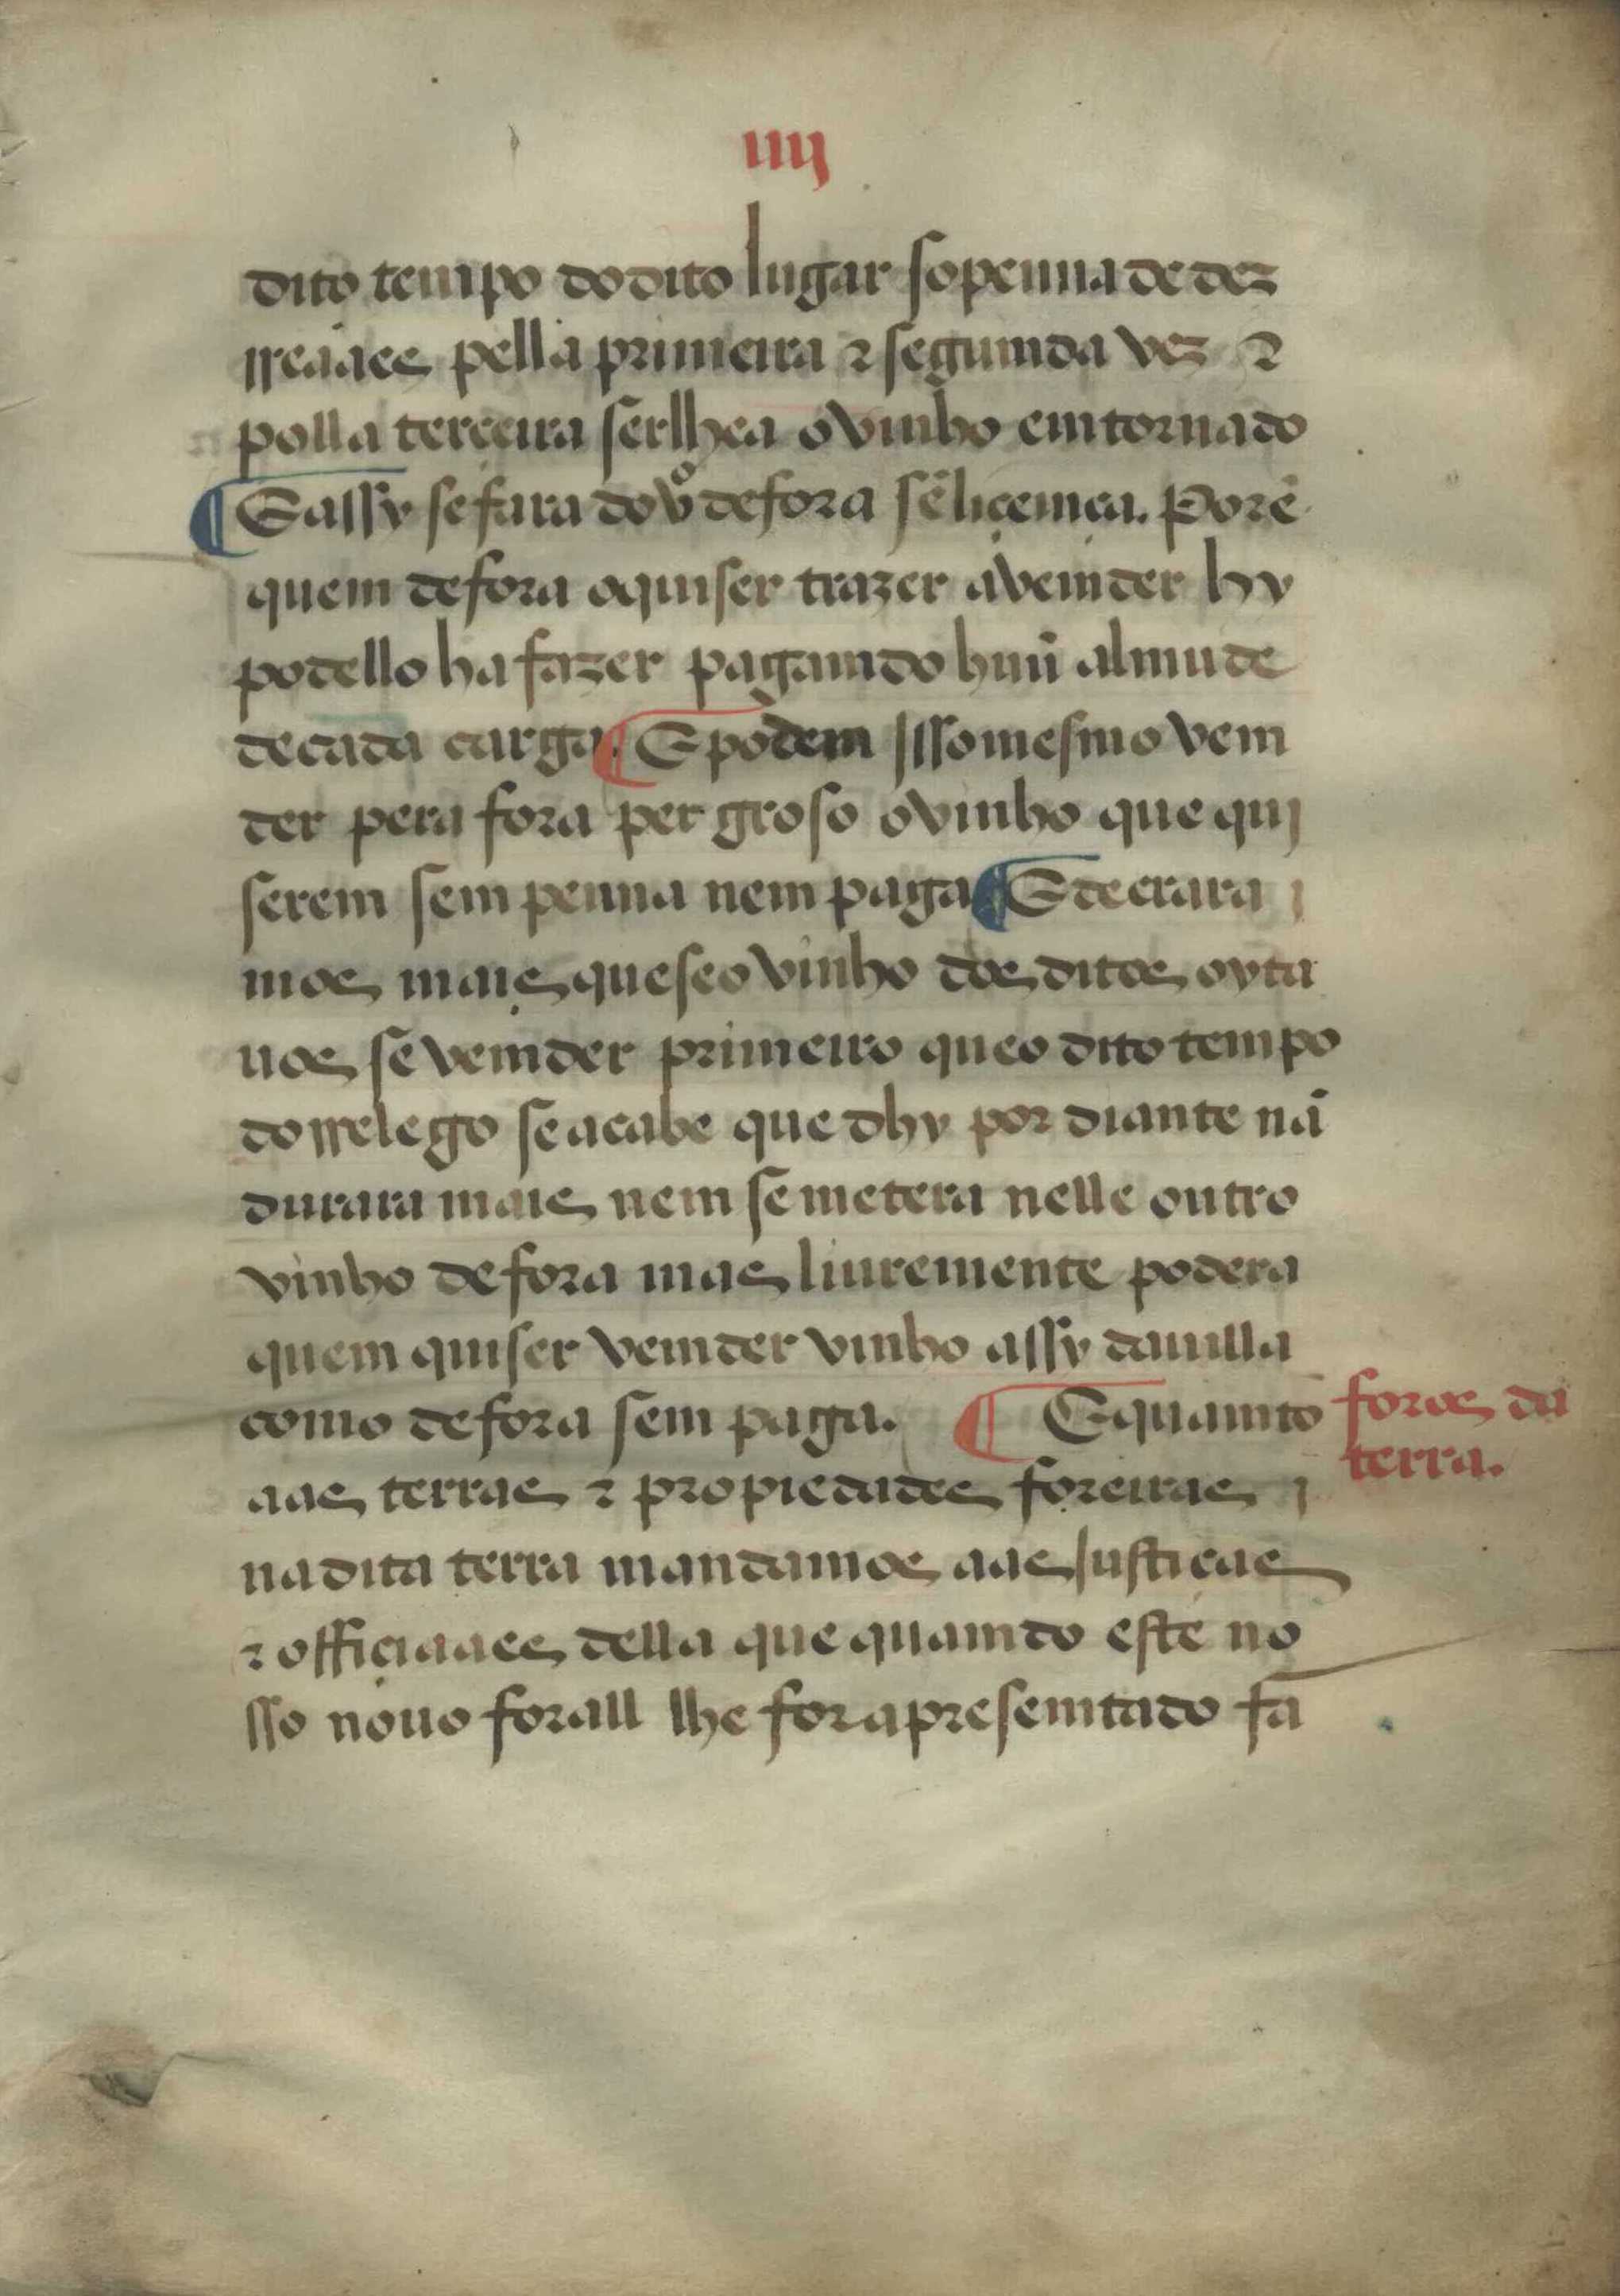 iiij
dito tempo do dito lugar so penna de dez
rreaaes pella primeira ⁊ segumda vez ⁊
polla terceira serlhea o vinho emtornado
¶ E assy se fara do vº de fora sẽ liçemça. Porẽ
quem de fora o quiser trazer a vemder hy
podello ha fazer pagamdo huũ almude
de cada carga. ¶ E podem Isso mesmo vem
der pera fora per groso o vinho que qui
serem sem penna nem paga ¶ E decrara
mos mais que se o vinho dos ditos oyta
uos se vemder primeiro que o dito tempo
do rrelego se acabe que dhy por diante nã
durara mais nem se metera nelle outro
vinho de fora mas liuremente podera
quem quiser vemder vinho assy da uilla
como de fora sem paga. ¶ E quamto
foros da
terra.
aas terras ⁊ propiedades foreiras
na dita terra mandamos aas Justiças
⁊ officiaaes della que quamdo este no
sso nouo forall lhe for apresemtado fa